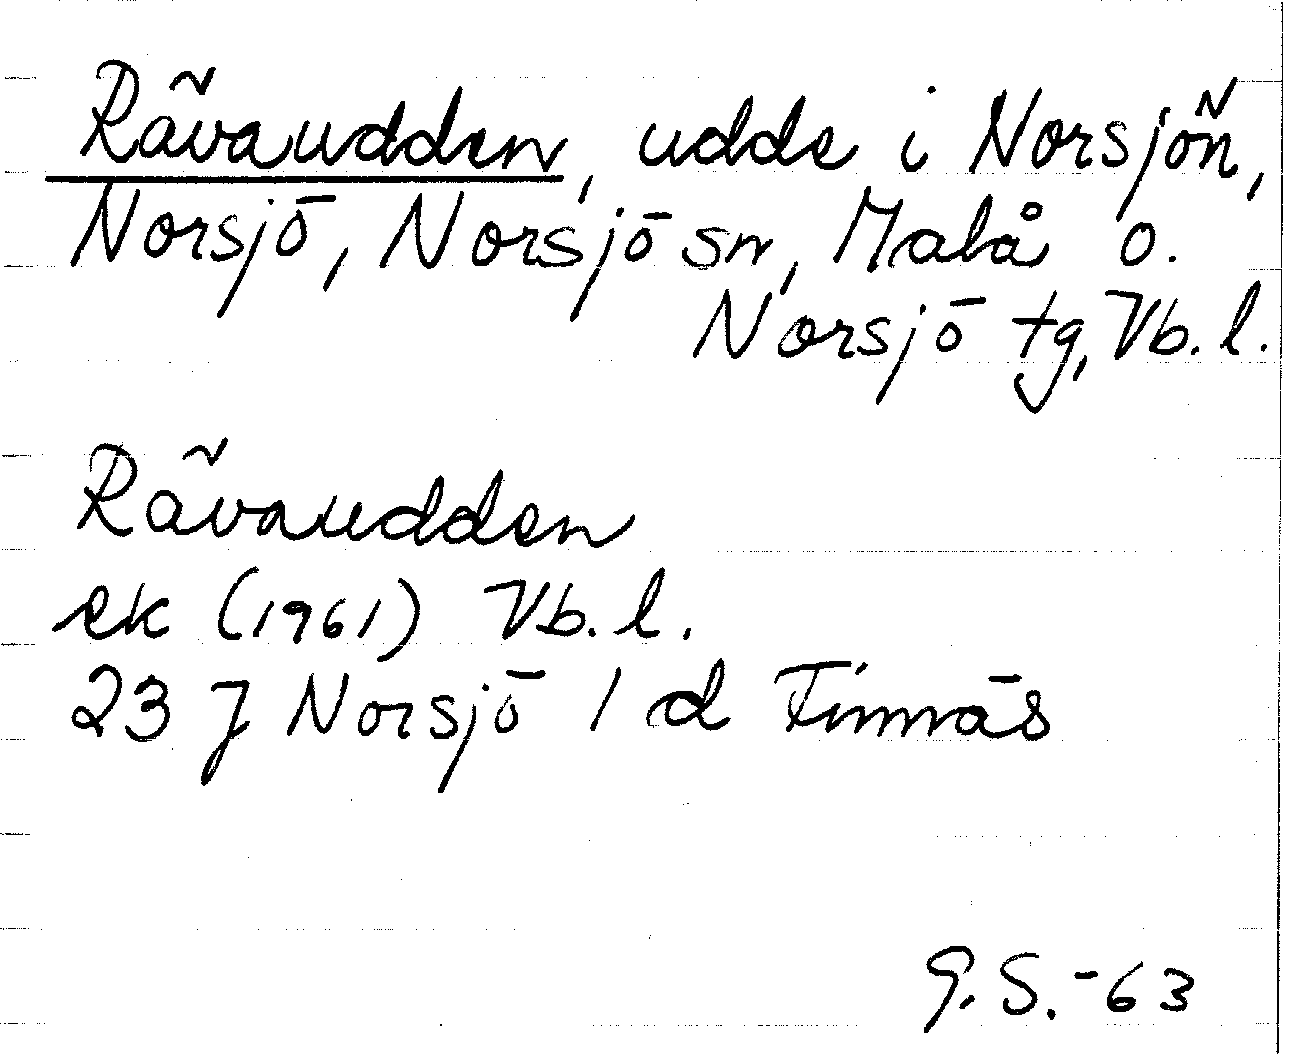 Rävaudden, udde i Norsjön,
Norsjö, Norsjö sn, Malå o.
Norsjö tg, Vb. l.
Rävaudden
ek (1961) Vb. l.
23 J Norsjö 1 d Finnäs
G. S. -63